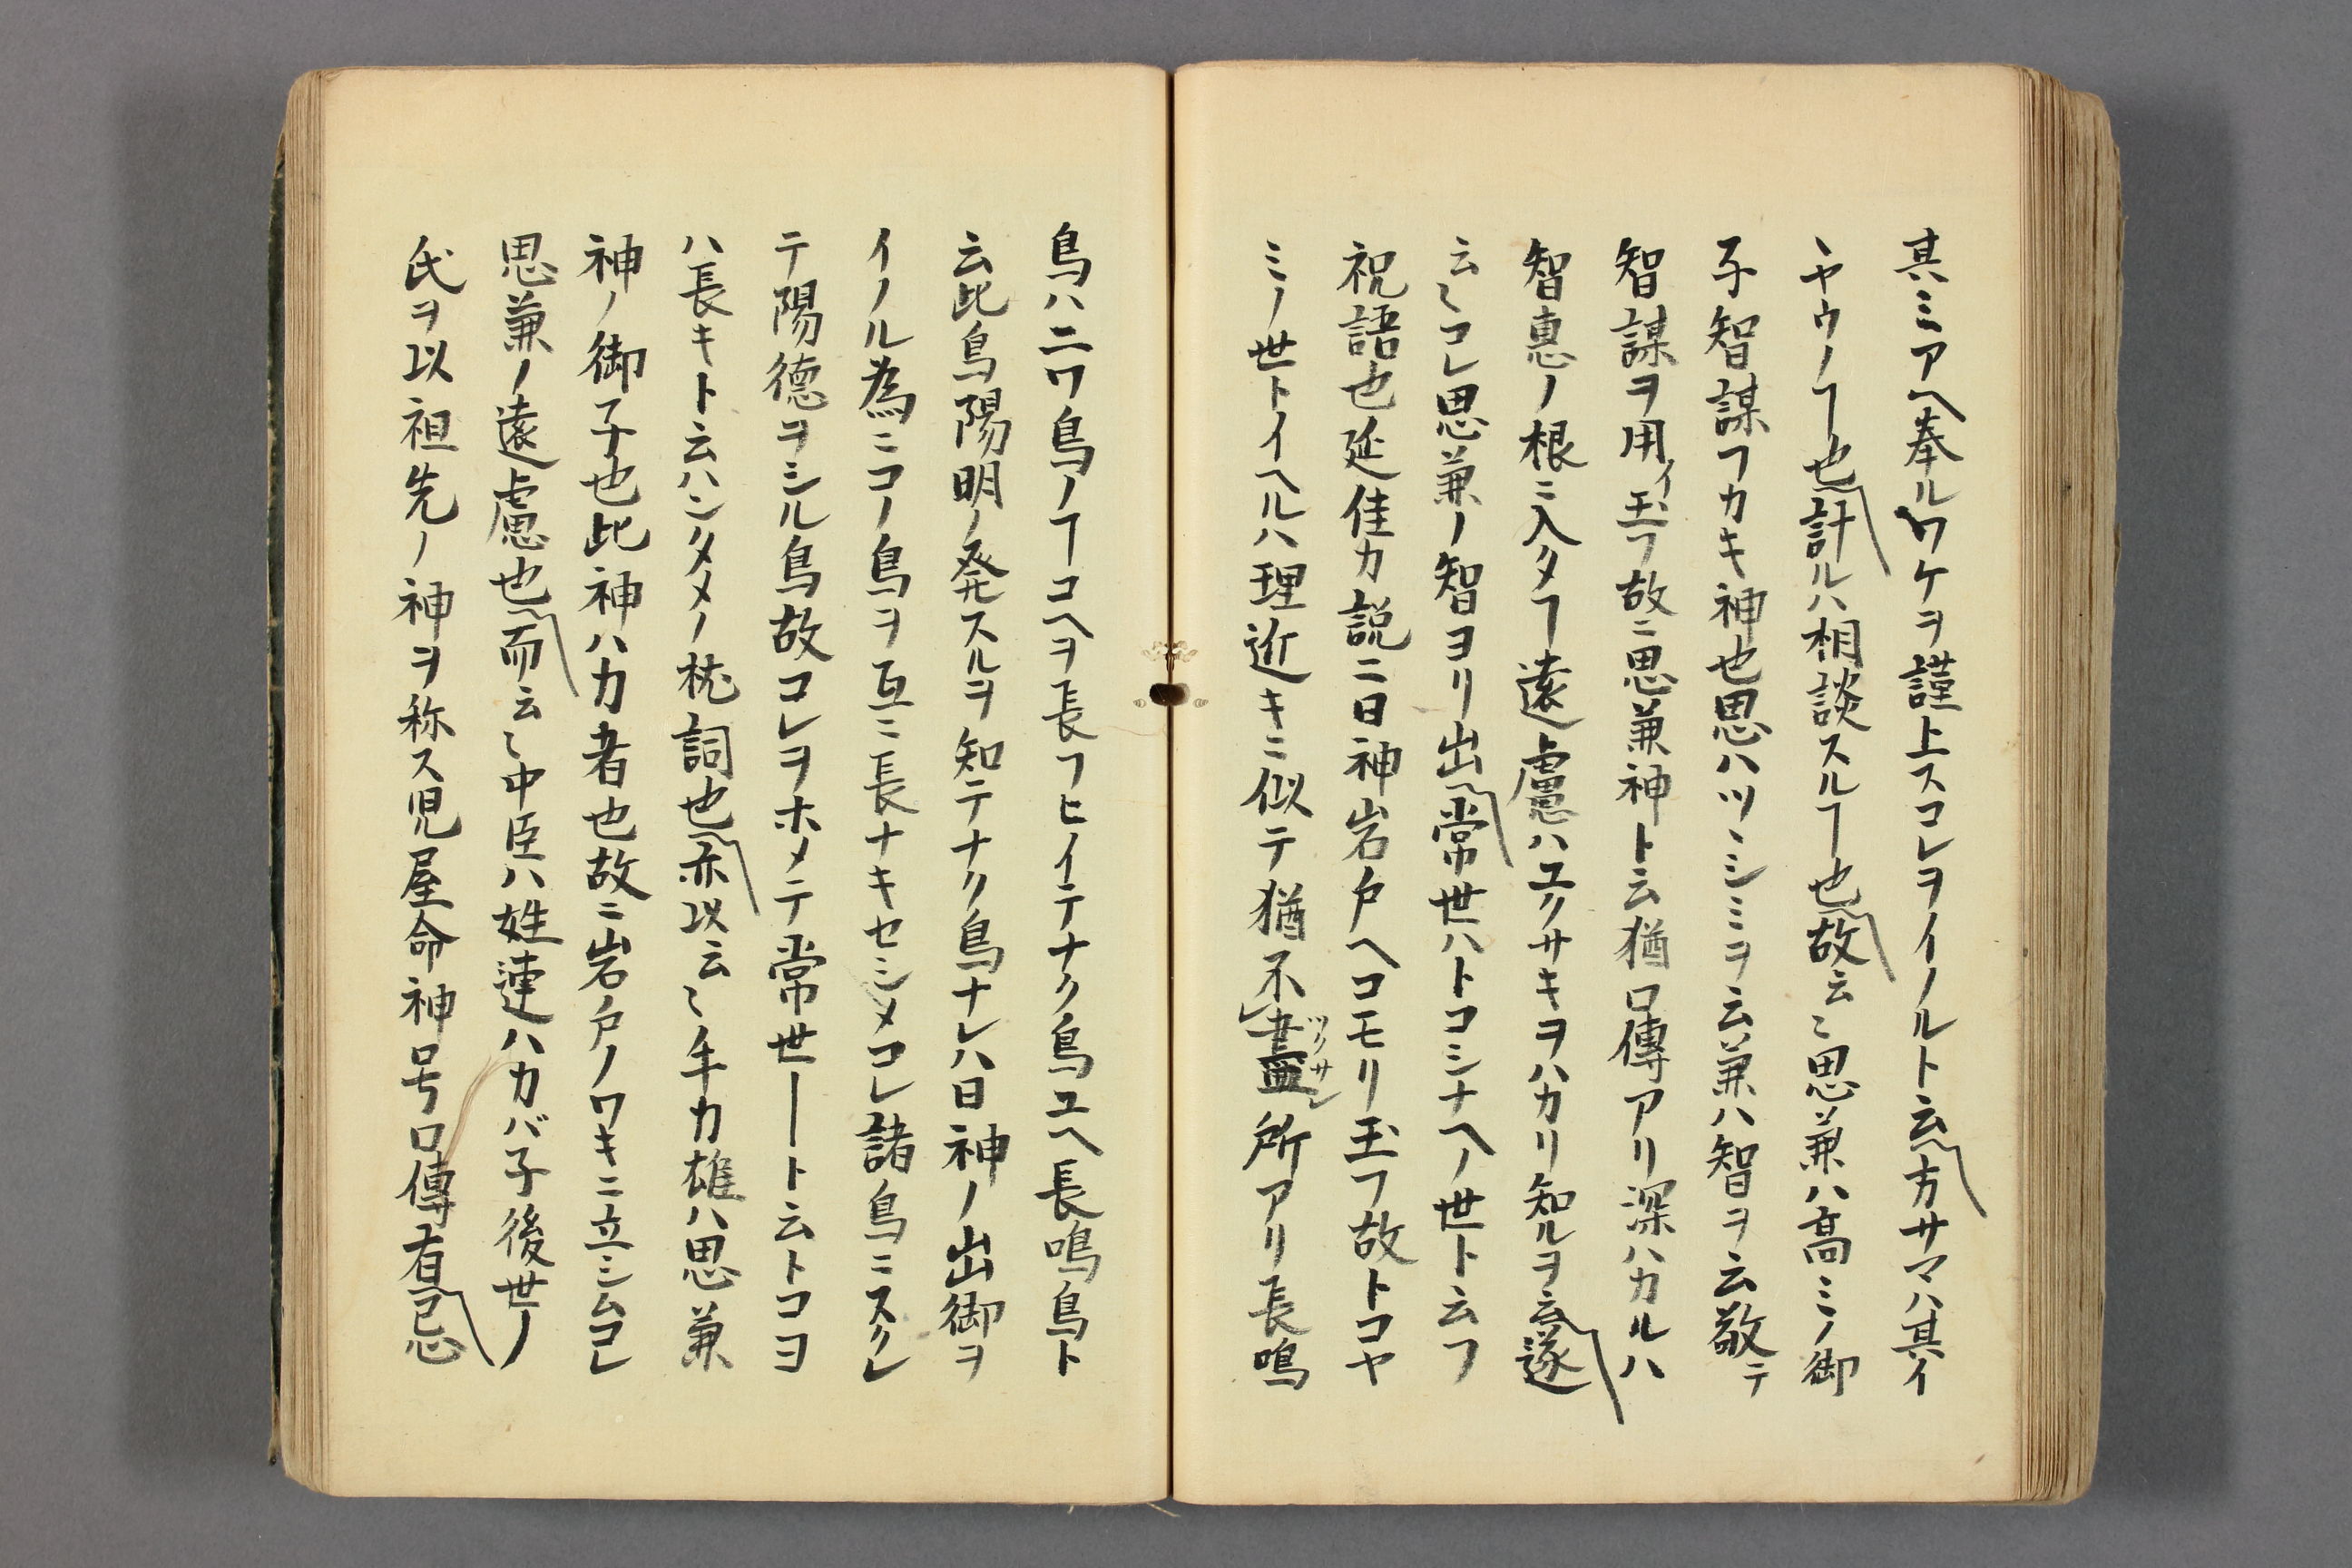 其ミアヘ奉ルワケヲ謹上スコレヲイノルト云方サマハ其イ
ヤウノヿ也計ルハ相談スルヿ也故云〻思兼ハ高ミノ御
子智謀フカキ神也思ハツヽシミヲ云兼ハ智ヲ云敬テ
智謀ヲ用イ玉フ故ニ思兼神ト云猶口傳アリ深ハカルハ
智恵ノ根ニ入タヿ遠慮ハユクサキヲハカリ知ルヲ云遂
云〻コレ思兼ノ智ヨリ出常世ハトコシナヘノ世ト云フ
祝語也延佳カ説ニ日神岩戸ヘコモリ玉フ故トコヤ
ミノ世トイヘルハ理近キニ似テ猶不レ盡ツクサ所アリ長鳴
鳥ハニワ鳥ノヿコヘヲ長フヒイテナク鳥ユヘ長鳴鳥ト
云此鳥陽明ノ発スルヲ知テナク鳥ナレハ日神ノ出御ヲ
イノル為ニコノ鳥ヲ互ニ長ナキセシメコレ諸鳥ニスクレ
テ陽德ヲシル鳥故コレヲホメテ常世―ト云トコヨ
ハ長キト云ハンタメノ枕詞也亦以云〻手力雄ハ思兼
神ノ御子也此神ハ力者也故ニ岩戸ノワキニ立シムコレ
思兼ノ遠慮也而云〻中臣ハ姓連ハカバ子後世ノ
氏ヲ以祖先ノ神ヲ称ス児屋命神号口傳有ヿ忌